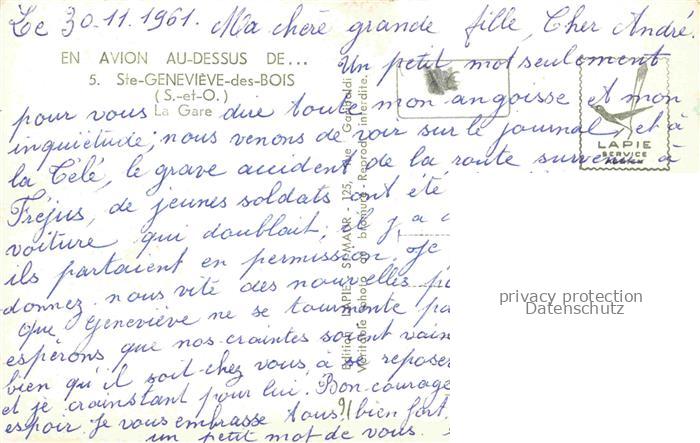 Le 30-11-1961. Ma chère grande fille, Cher André.
EN AVION AU-DESSUS DE...
5. Ste-GENEVIÈVE-des-BOIS
(S.-et-O.)
La Gare
Un petit mot seulement
pour vous dire toute mon angoisse et mon
inquiétude; nous venons de voir sur le journal, et à
la Télé, le grave accident de la route survenu à
Fréjus, de jeunes soldats ont été
voiture qui doublait; il y a
ils partaient en permission. Je
donnez nous vite des nouvelles
que Geneviève ne se tourmente pas
espérons que nos craintes soient vain
bien qu'il soit chez vous, à se reposer
et je crainstant pour lui. Bon courage
espoir. Je vous embrasse tous bien fort.
un petit mot de vous.
91
Edition LAPIE, St-MAUR - 125, rue Garibaldi
Véritable photo au bromure - Reproduction interdite.
LAPIE
SERVICE
privacy protection
Datenschutz